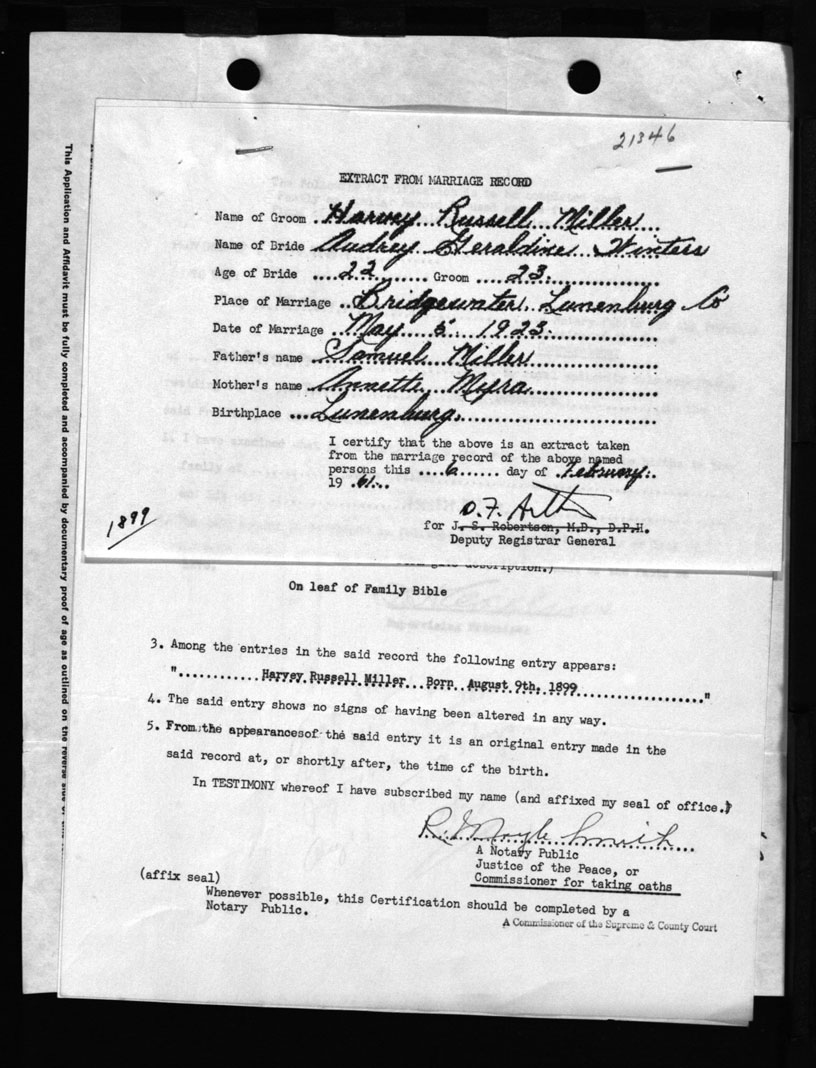 21346
EXTRACT FROM MARRIAGE RECORD
Name of Groom .Harvey Russell Miller...
Name of Bride Audrey Geraldine Winters
Age of Bride ....22......... Groom ....23..................
Place of Marriage ..Bridgewater, Lunenburg Co
Date of Marriage .May 5, 1923.................
Father's name .Samuel Miller....................
Mother's name .Annette Myra....................
Birthplace ...Lunenburg.............................
I certify that the above is an extract taken
from the marriage record of the above named
persons this ....6...... day of .February..
19 .61...
for J. S. Robertson, M.D., D.P.H.
Deputy Registrar General
1899
description.)
On leaf of Family Bible
3. Among the entries in the said record the following entry appears:
"............Harvey Russell Miller...Born..August 9th, 1899....................."
4. The said entry shows no signs of having been altered in any way.
5. From the appearances of the said entry it is an original entry made in the
said record at, or shortly after, the time of the birth.
In TESTIMONY whereof I have subscribed my name (and affixed my seal of office.)
A Notary Public
Justice of the Peace, or
Commissioner for taking oaths
(affix seal)
Whenever possible, this Certification should be completed by a
Notary Public.
A Commissioner of the Supreme & County Court
This Application and Affidavit must be fully completed and accompanied by documentary proof of age as outlined on the reverse side of